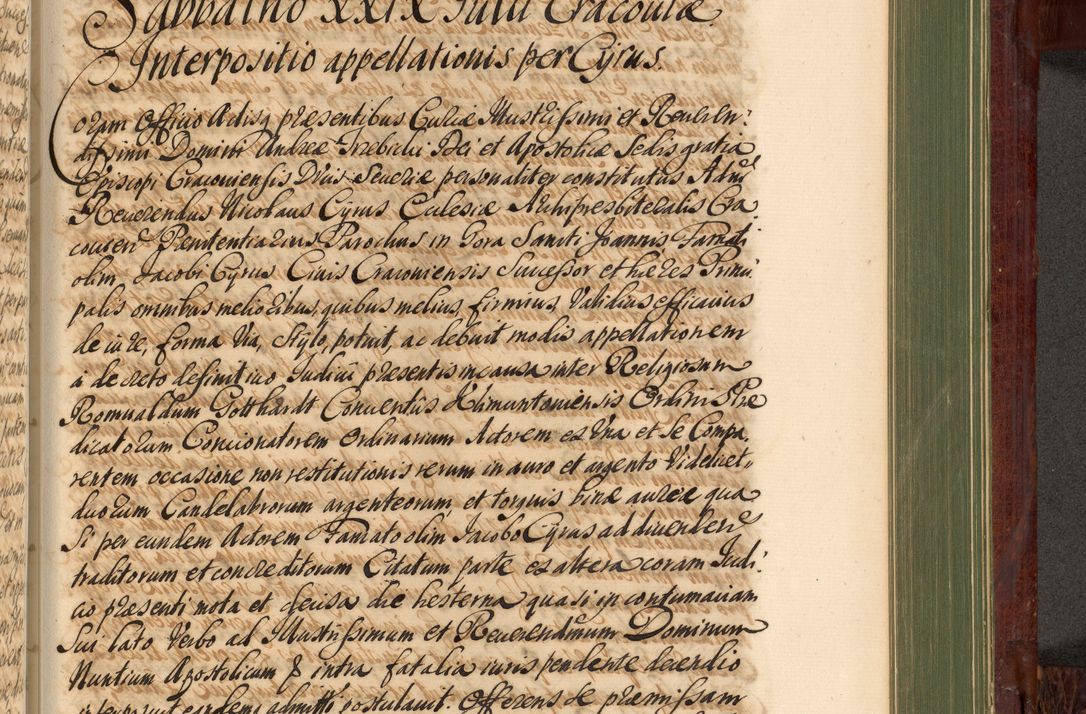 Sabbatho XXIX Iulii Cracoviæ
Interpositio appellationis per Cyrus.
Coram Officio Actisq præsentibus Curiæ Illustrissimi et Reueren:
dissimi Domini Andreæ Trzebicki Dei et Apostolicæ Sedis gratia
Episcopi Cracouiensis Ducis Seueriæ personaliter constitutus Adm
Reuerendus Nicolaus Cyrus Eclesiæ Archipresbiteralis Cra
couien Pænitentiarius Parochus in Gora Sancti Joannis Famati
olim Jacobi Cyrus Ciuis Cracouiensis Successor et hæres Princi
palis omnibus melioribus, quibus melius, firmius, Validius efficatius
de iure, forma Via, stylo, potuit, ac debuit modis appellationem
a decreto definitiuo Iudicii præsentis in causa inter Religiosum
Romualdum Gotthardt Conuentus Klimuntouiensis Ordinis Præ
dicatorum Concionatorem Ordinarium Actorem ex Vna et se Compa,
rentem occasione non restitutionis rerum in auro et argento Videlicet,,
duorum Candelabrorum argenteorum et torquis binæ aureæ qua
si per eundem Actorem Famato olim Jacobo Cyrus ad diuenden
traditorum et concreditorum Citatum parte ex altera coram Iudi:
cio præsenti mota et decisa die hesterna quasi in contumaciam
sui lato Verbo ad Illustrissimum et Reuerendmum Dominum
Nuntium Apostolicum & intra fatalia iuris pendente decendio
interposuit eandemq admitti postulauit. Offerens se præmissam